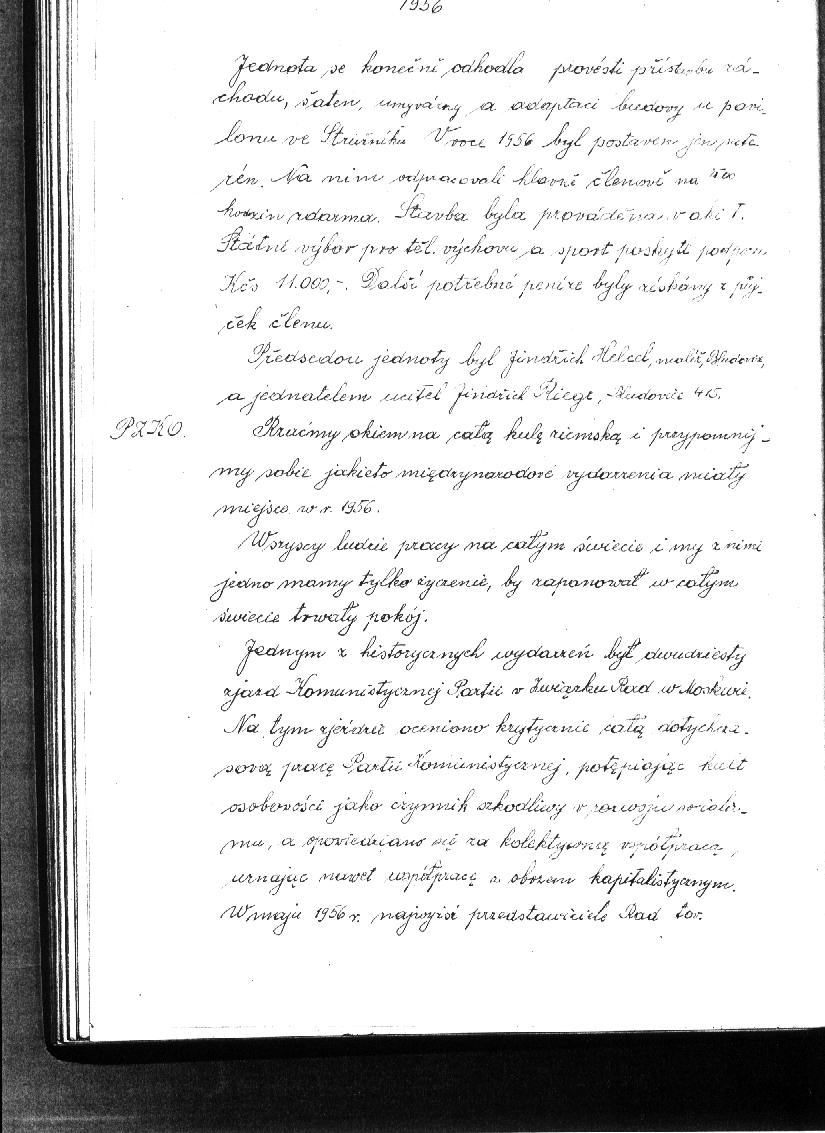 1956
Jednota se konečně odhodla provésti přístavbu zá-
chodu, šaten, umyvárny a adaptaci budovy u pavi-
lonu ve Stružníku V roce 1956 byl postaven jen
rén. Na něm odpracovali hlavně členové na 1500
hodzin zdarma. Stavba byla prováděna v akci T.
Státní výbor pro těl. výchovu a sport poskytl
Kčs 11.000,-. Další potřebné peníze byly získány z půj-
ček členu.
Předsedou jednoty byl Jindřich Helcel, malíř, Bludovice,
a jednatelem učitel Jindřich Riegr, Bludovice 415.
PZKO. Rzućmy okiem na całą kulę ziemską i przypomnij-
my sobie jakieto międzynarodové vydarzenia miały
miejsce w r. 1956.
Wszyscy ludzie pracy na całym świecie i my z nimi
jedno mamy tylko życzenie, by zapanował w całym
świecie trwały pokój.
Jednym z historycznych wydarzeń był dwudziesty
zjazd Komunistycznej Partii v Związku Rad w Moskwie.
Na tym zjeździe oceniono krytycznie całą dotychcza-
sovą pracę Partii Komunistycznej, potępiając kult
osobowości jako czynnik szkodliwy v rozwoju socializ-
mu, a opoviedziano się za kolektywną współpracą,
uznając nawet współpracę z obozem kapitalistycznym.
W maju 1956 r. najwyżsi przedstawiciele Rad tov.